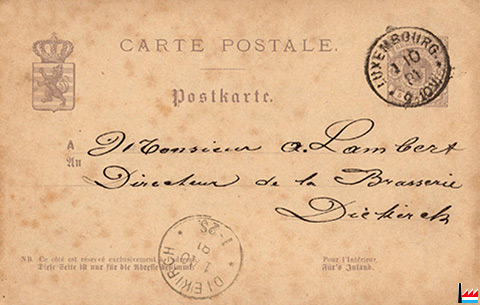 CARTE POSTALE.
LUXEMBOURG
10
91
Postkarte.
A
An
Monsieur A. Lambert
Directeur de la Brasserie
Diekirch
1-2S.
DIEKIRCH
1
91
NB. Ce côté est réservé exclusivement à l'adresse.
Diese Seite ist nur für die Adresse bestimmt.
Pour l'Intérieur.
Für's Inland.